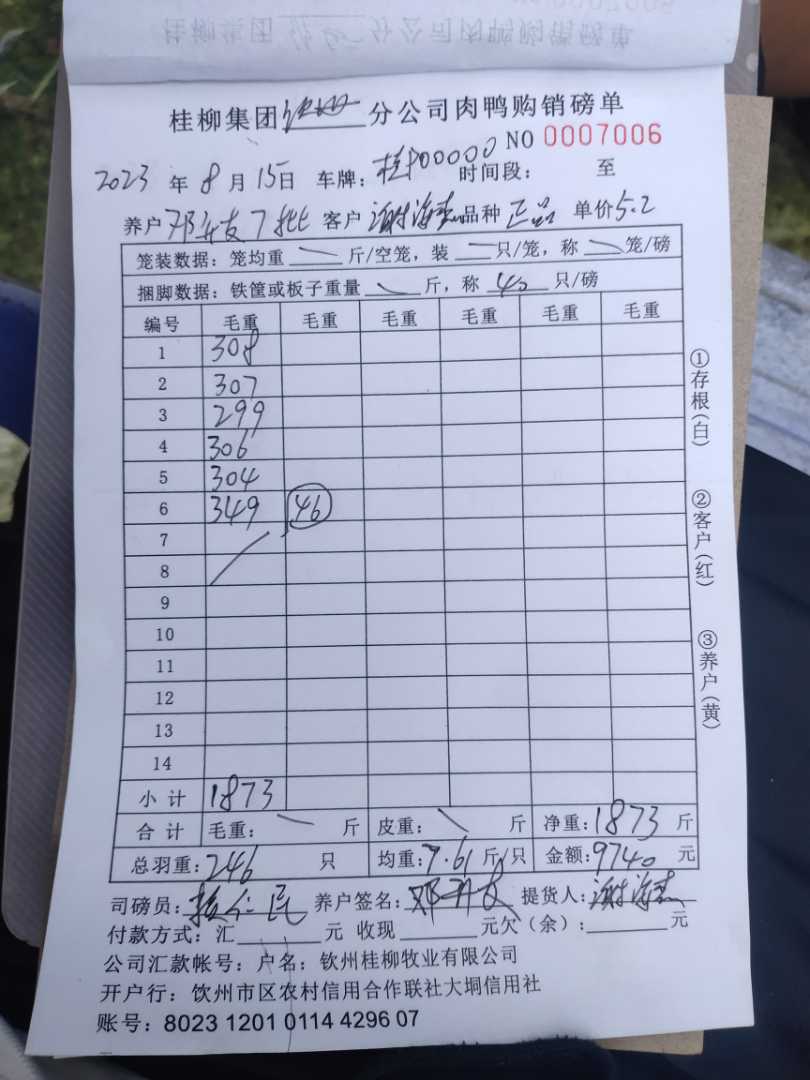 桂柳集团钦州分公司肉鸭购销磅单
NO 0007006
2023年8月15日 车牌：桂P00000 时间段： 至
养户 邓开支7批 客户 谢海杰 品种 正品 单价5.2
笼装数据：笼均重 斤/空笼，装 只/笼，称 笼/磅
捆脚数据：铁筐或板子重量 斤，称 40 只/磅
编号 毛重 毛重 毛重 毛重 毛重 毛重
1 308
2 307
3 299
4 306
5 304
6 349 46
7
8
9
10
11
12
13
14
小计 1873
合计 毛重： 斤 皮重： 斤 净重：1873 斤
总羽重：246 只 均重：7.61 斤/只 金额：9740 元
司磅员： 养户签名： 提货人：谢海杰
付款方式：汇 元 收现 元欠（余）： 元
公司汇款帐号：户名：钦州桂柳牧业有限公司
开户行：饮州市区农村信用合作联社大垌信用社
账号：8023 1201 0114 4296 07
①存根（白）
②客户（红）
③养户（黄）